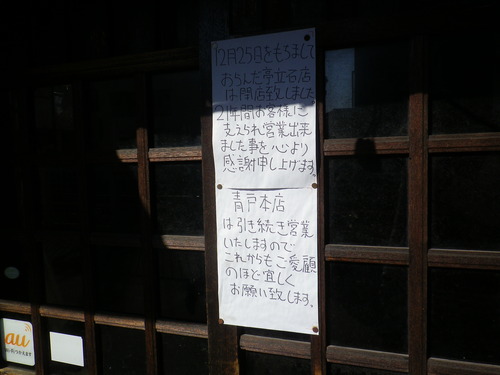 12月25日をもちまして
おらんだ亭立石店
は閉店致しました
21年間お客様に
支えられ営業出来
ました事を心より
感謝申し上げます。
青戸本店
は引き続き営業
いたしますので
これからもご愛顧
のほど宜しく
お願い致します。
au